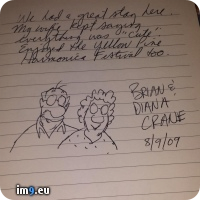 We had a great stay here.
My wife kept saying
everything was "Cute".
Enjoyed the Yellow Pine
Harmonica Festival too.
BRIAN &
DIANA
CRANE
8/9/09
im9.eu